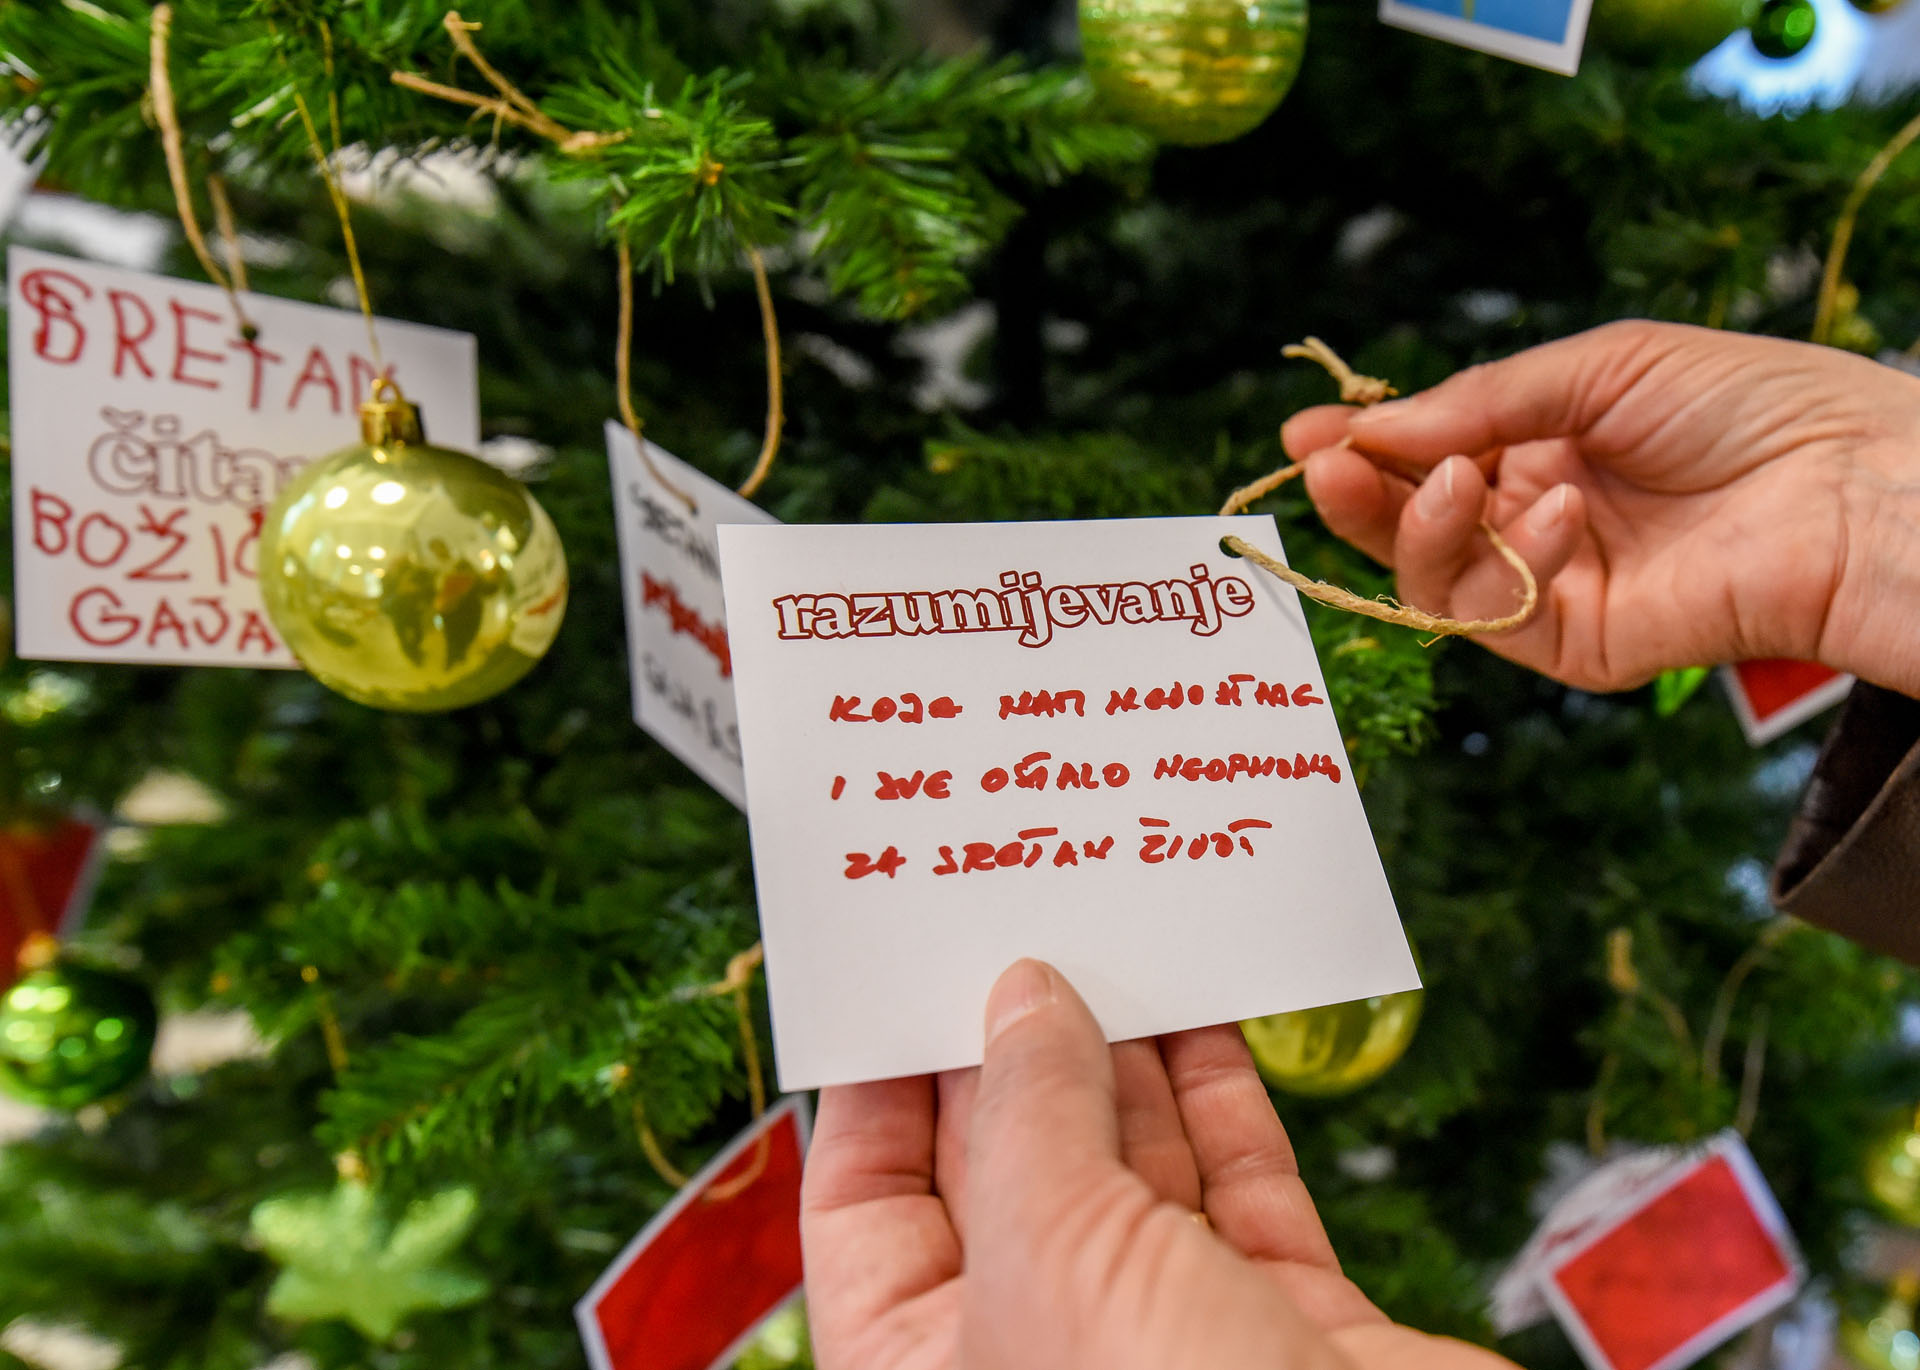 SRETAN
čita
BOŽIĆ
GAJA
razumijevanje
KOJE NAM NEDOSTAJE
I SVE OSTALO NEOPHODNO
ZA SRETAN ŽIVOT